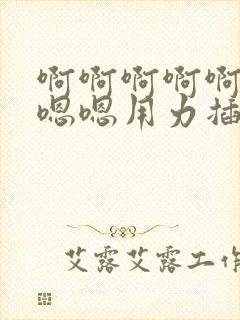 啊啊啊啊啊
嗯嗯用力插
艾露艾露工作